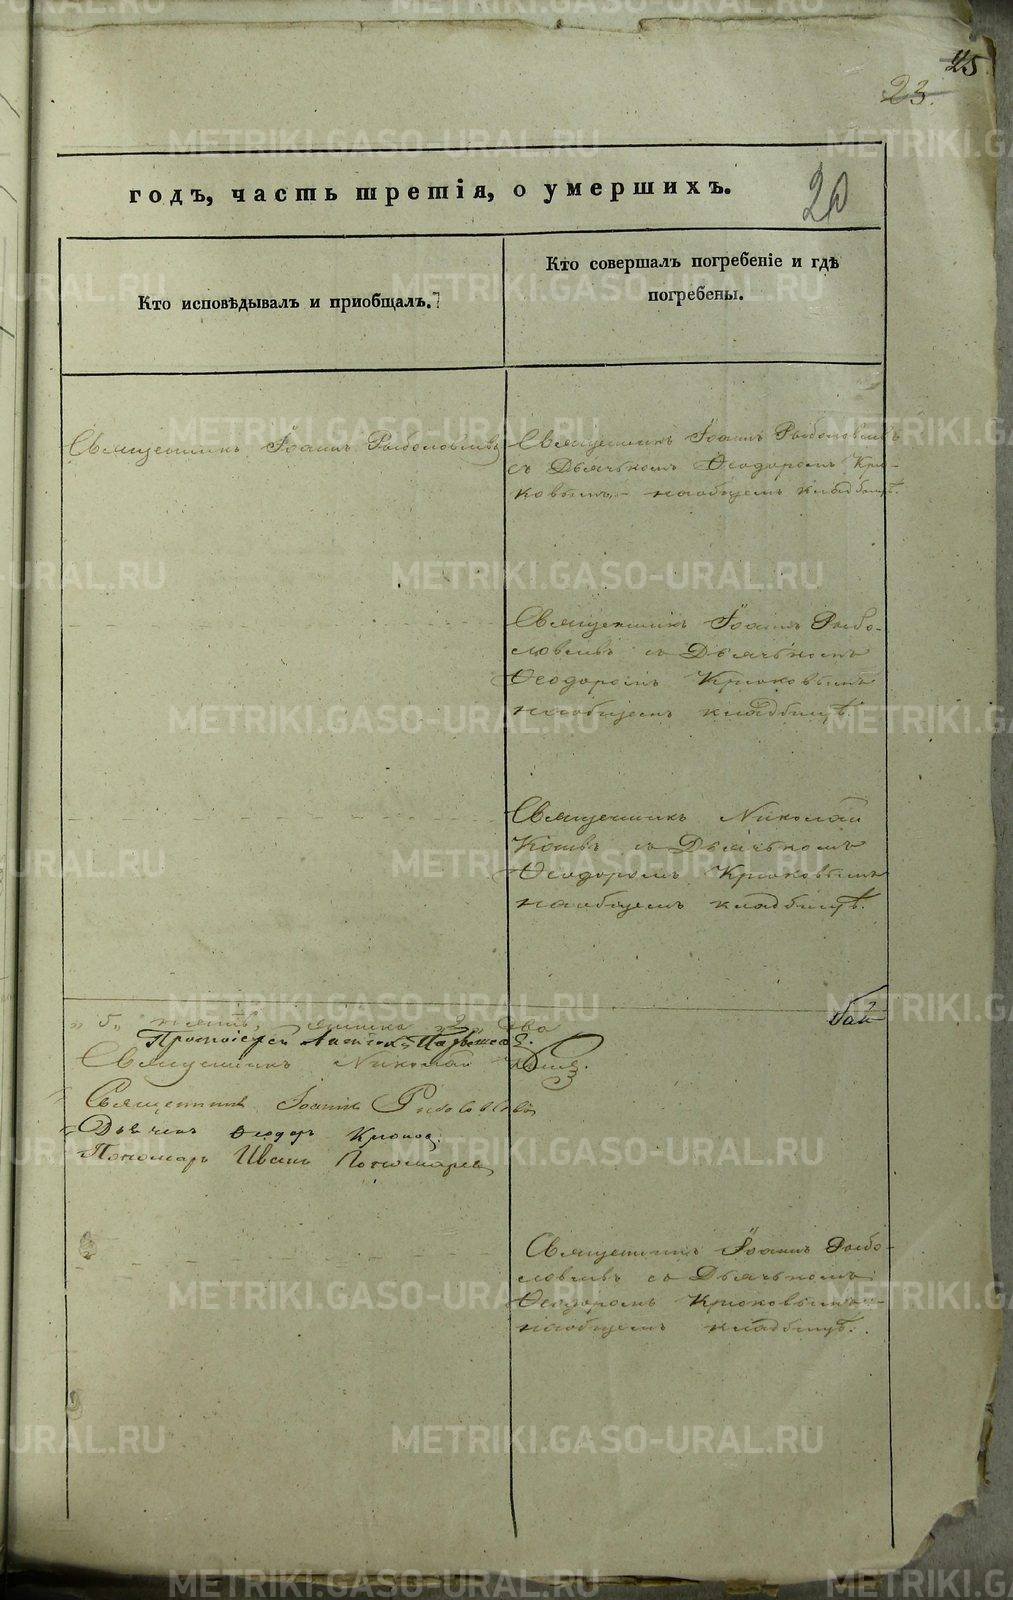 25
23.
годъ, часть третія, о умершихъ.
20
Кто исповѣдывалъ и приобщалъ.
Кто совершалъ погребеніе и гдѣ
погребены.
Священникъ Іоаннъ Рыболовлевъ
Священникъ Іоаннъ Рыболовлевъ
съ Дьячькомъ Ѳеодоромъ Крю-
ковымъ, на общемъ кладбищѣ.
Священникъ Іоаннъ Рыбо-
ловлевъ съ Дьячькомъ
Ѳеодоромъ Крюковымъ
на общемъ кладбищѣ.
Священникъ Николай
съ Дьячькомъ
Ѳеодоромъ Крюковымъ
на общемъ кладбищѣ.
"5"
Протоіерей
Священникъ Николай
Священникъ Іоаннъ Рыболовлевъ
Дьячекъ Ѳеодоръ Крюков
Пономарь Иванъ Пономарев
Священникъ Іоаннъ Рыбо-
ловлевъ съ Дьячькомъ
Ѳеодоромъ Крюковымъ
на общемъ кладбищѣ.
METRIKI.GASO-URAL.RU